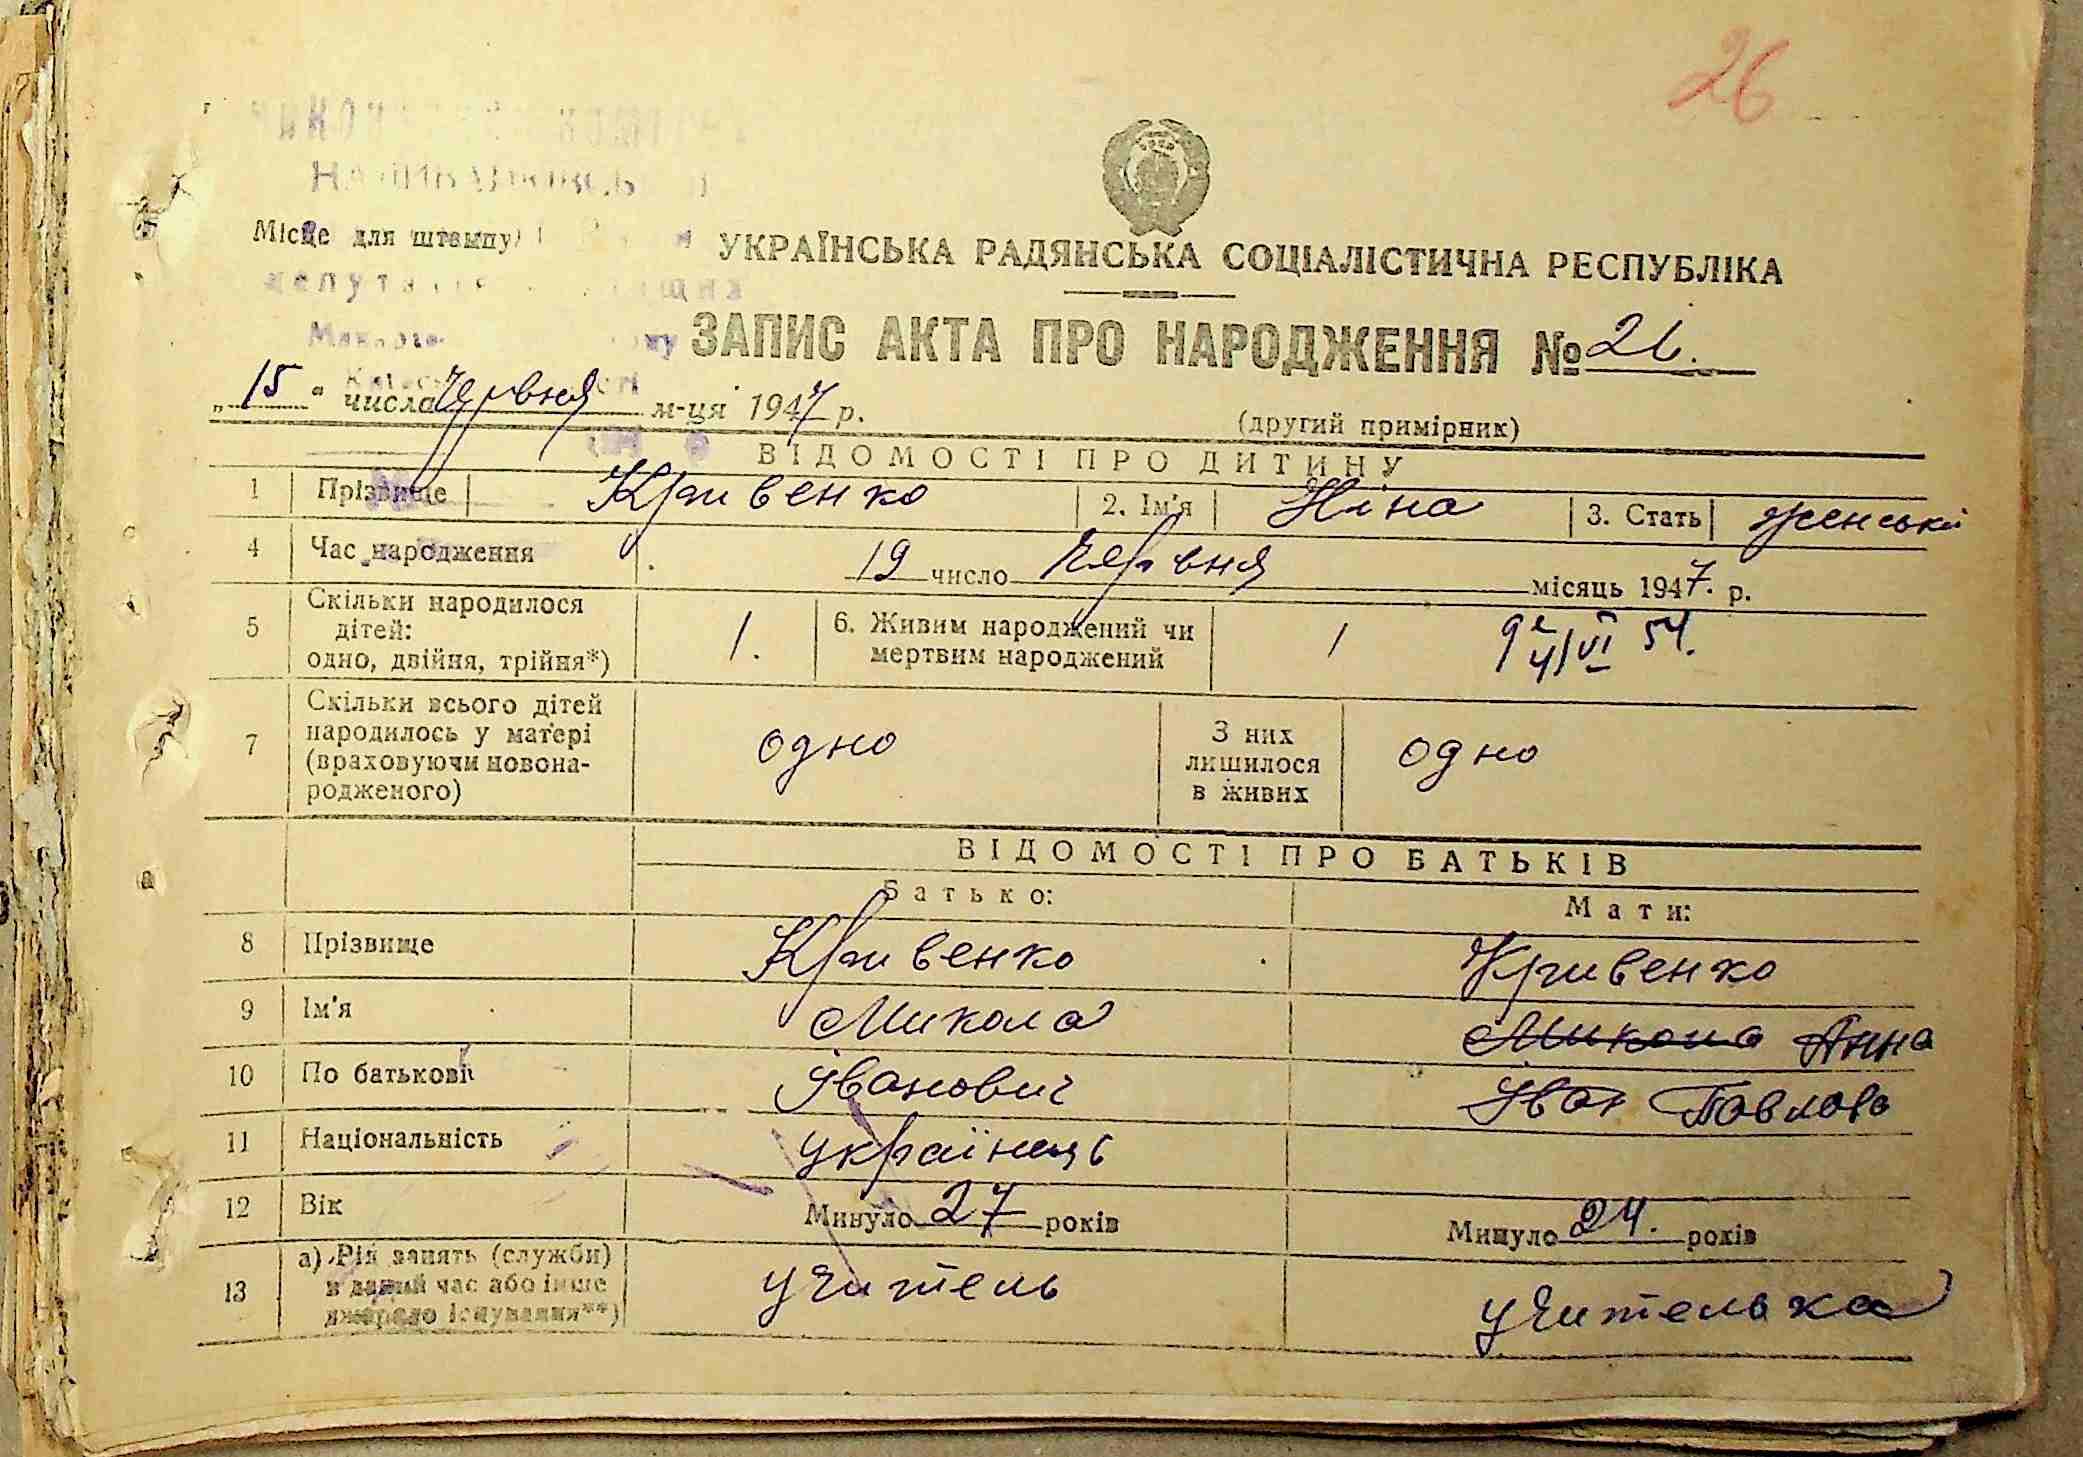 26
Місце для штампу
УКРАЇНСЬКА РАДЯНСЬКА СОЦІАЛІСТИЧНА РЕСПУБЛІКА
ЗАПИС АКТА ПРО НАРОДЖЕННЯ № 26.
„15" числа червня м-ця 1947 р.
(другий примірник)
ВІДОМОСТІ ПРО ДИТИНУ
1 Прізвище Кривенко 2. Ім'я Ніна 3. Стать
4 Час народження 19 число червня місяць 1947. р.
5 Скільки народилося дітей: одно, двійня, трійня*) 1. 6. Живим народжений чи мертвим народжений 1
7 Скільки всього дітей народилось у матері (враховуючи новонародженого) одно З них лишилося в живих одно
ВІДОМОСТІ ПРО БАТЬКІВ
Батько: Мати:
8 Прізвище Кривенко Кривенко
9 Ім'я Микола Микола Анна
10 По батькові Іванович Іван
11 Національність українець
12 Вік Минуло 27 років Минуло 24. років
13 а) Рід занять (служби) в даний час або інше джерело існування**) учитель учителька